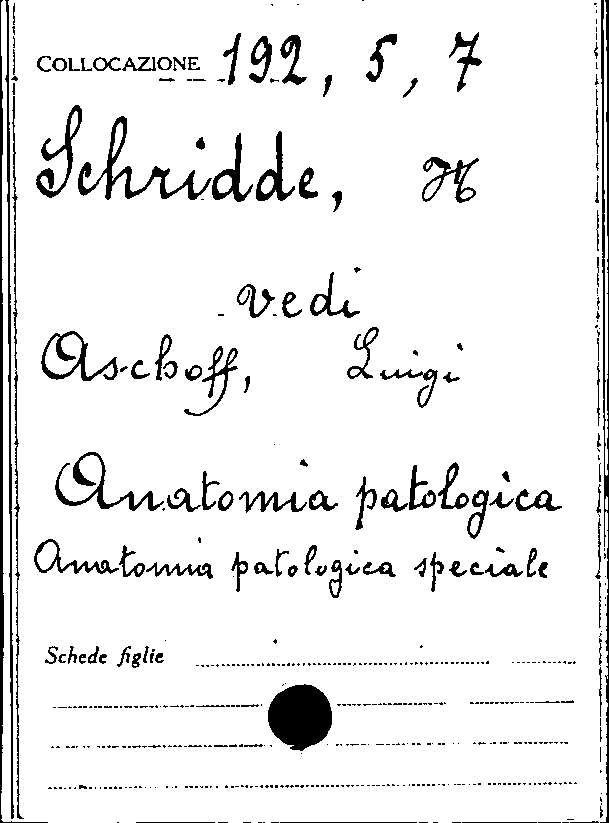 COLLOCAZIONE 192, 5, 7
Schridde, H
vedi
Aschoff, Luigi
Anatomia patologica
Anatomia patologica speciale
Schede figlie